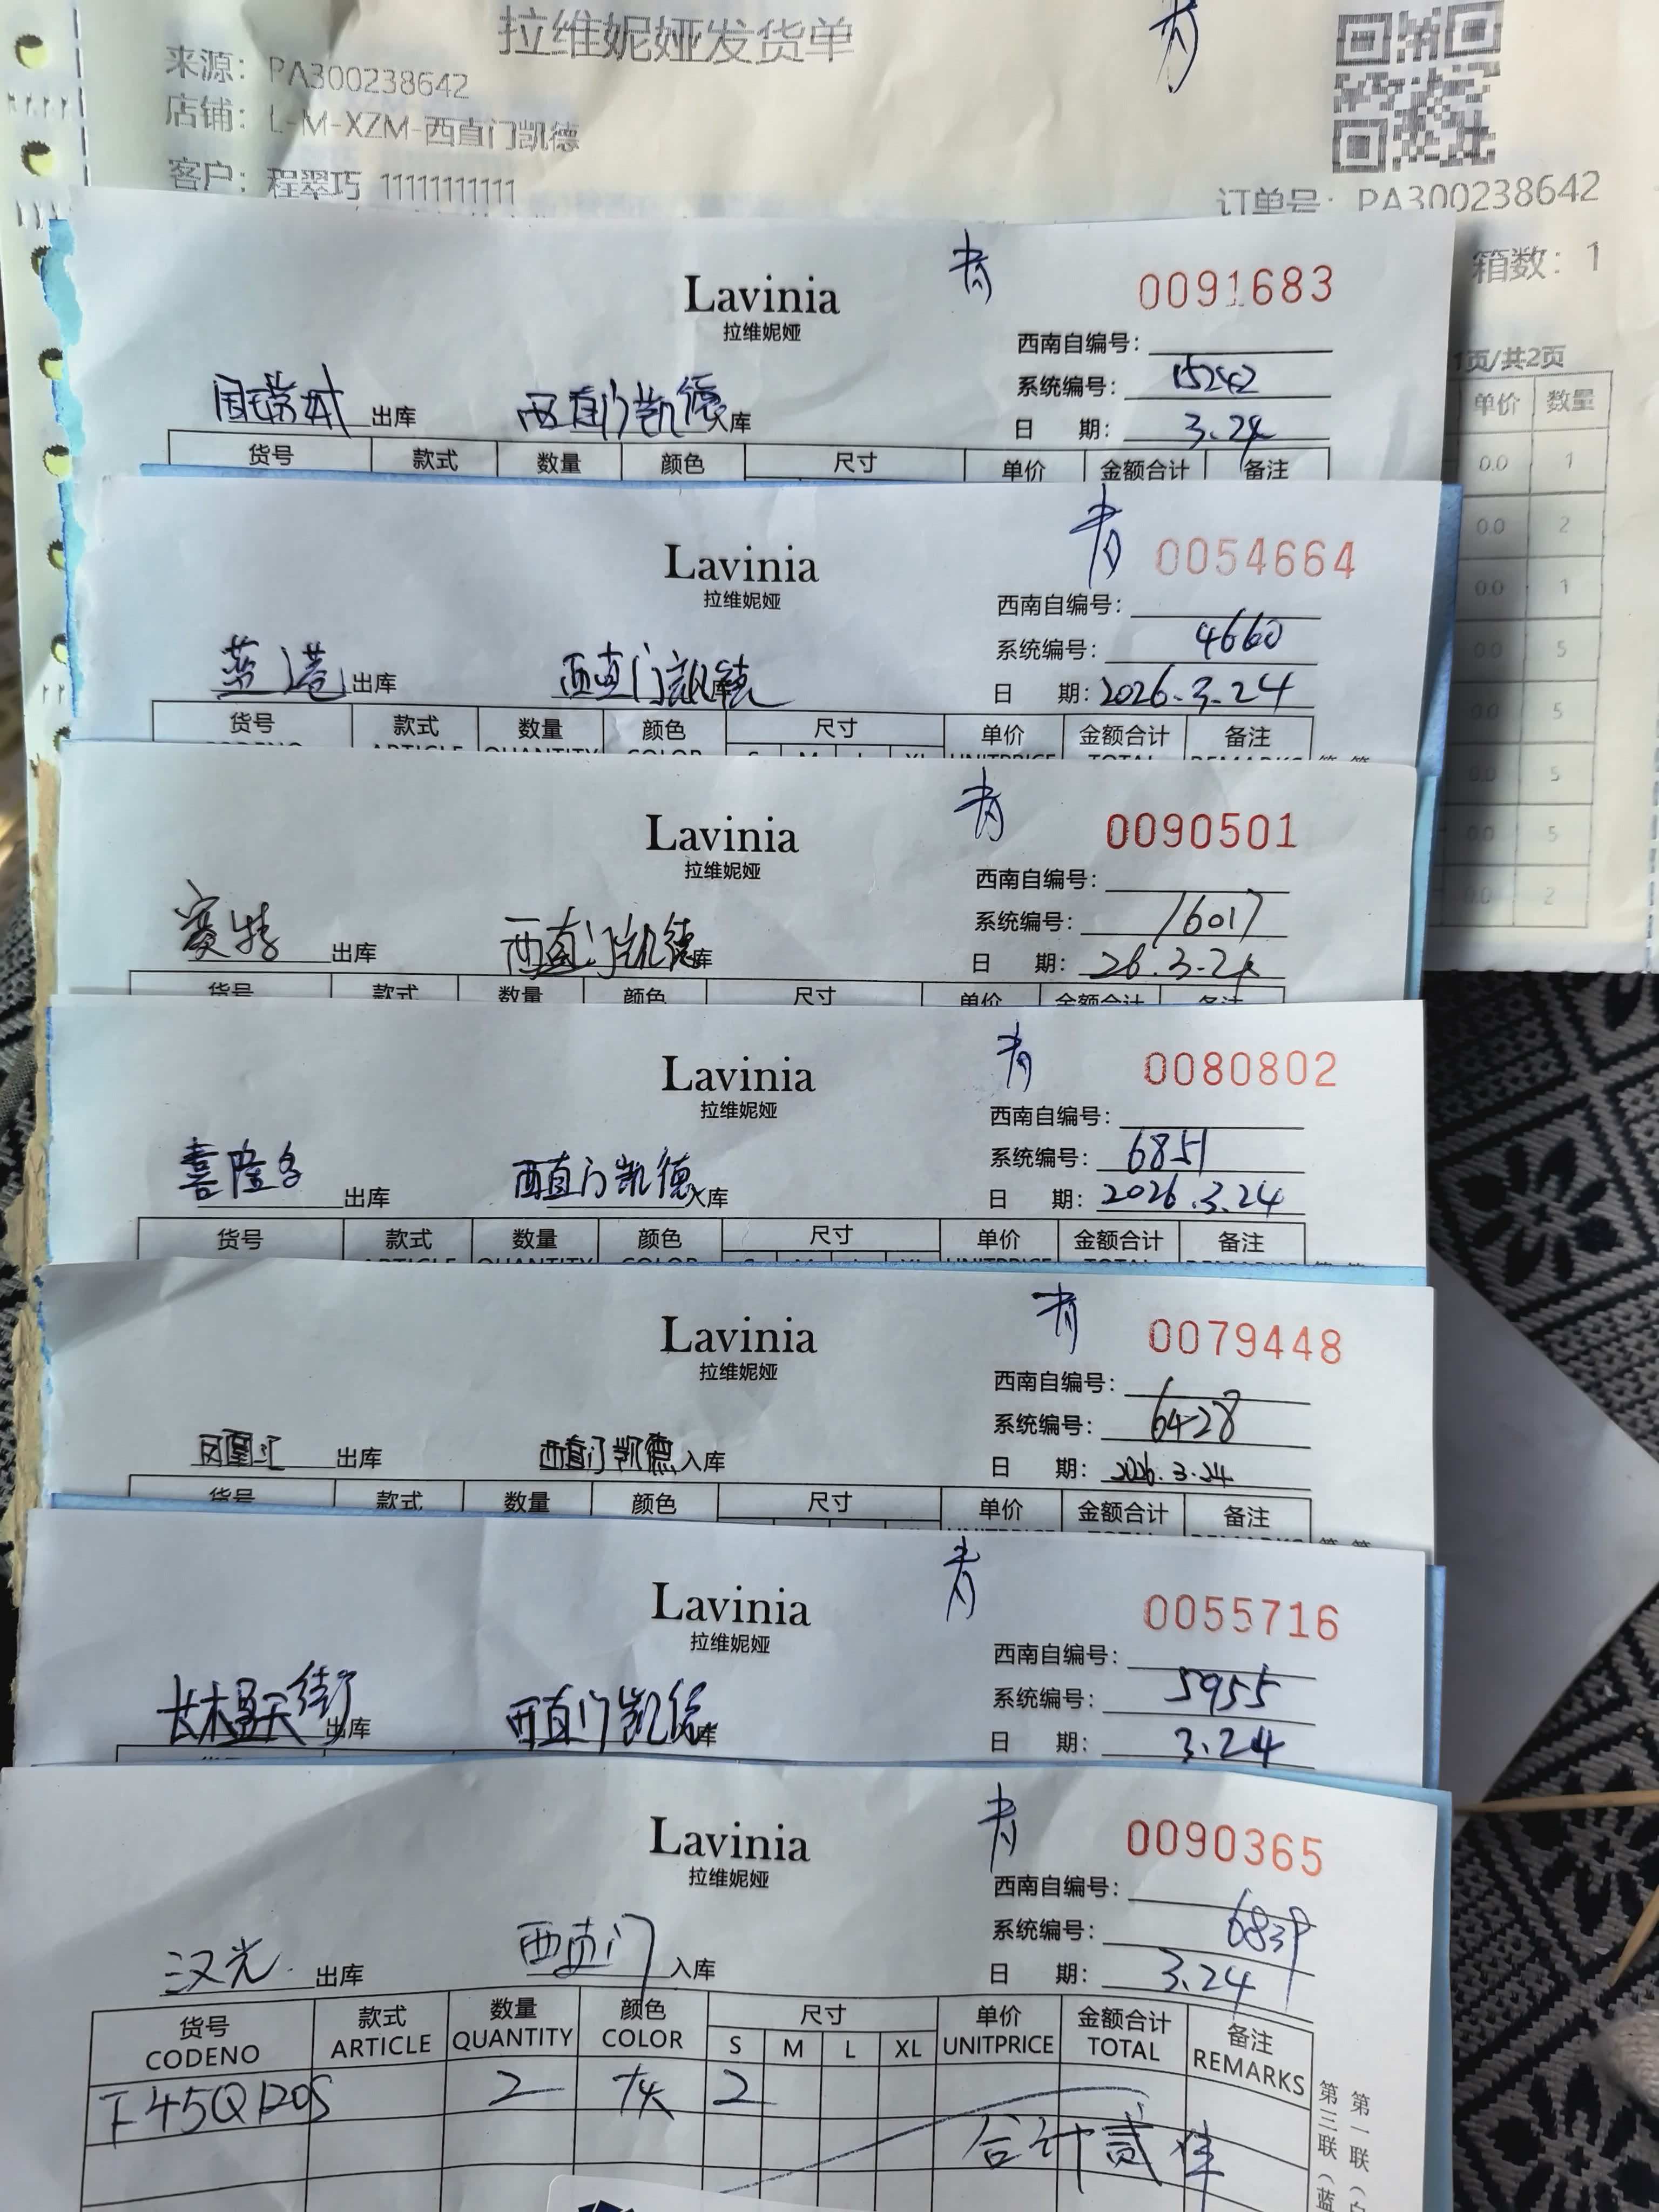 拉维妮娅发货单
来源：PA300238642
店铺：L-M-XZM-西直门凯德
客户：程翠巧 11111111111
订单号：PA300238642
箱数：1
1页/共2页
单价 数量
0.0 1
0.0 2
0.0 1
0.0 5
0.0 5
0.0 5
0.0 5
0.0 2
Lavinia
拉维妮娅
0091683
西南自编号：
系统编号：15242
日 期：3.24
出库 西直门凯德 入库
货号 款式 数量 颜色 尺寸 单价 金额合计 备注
Lavinia
拉维妮娅
0054664
西南自编号：
系统编号：4660
日 期：2026.3.24
蓝港 出库 西直门凯德
货号 款式 数量 颜色 尺寸 单价 金额合计 备注
CODENO ARTICLE QUANTITY COLOR S M L XL UNITPRICE TOTAL REMARKS
Lavinia
拉维妮娅
0090501
西南自编号：
系统编号：16017
日 期：26.3.24
赛特 出库 西直门凯德 库
货号 款式 数量 颜色 尺寸 单价 金额合计 备注
Lavinia
拉维妮娅
0080802
西南自编号：
系统编号：6851
日 期：2026.3.24
喜隆多 出库 西直门凯德 入库
货号 款式 数量 颜色 尺寸 单价 金额合计 备注
ARTICLE QUANTITY COLOR S M L XL UNITPRICE TOTAL REMARKS
Lavinia
拉维妮娅
0079448
西南自编号：
系统编号：6428
日 期：2026.3.24
凤凰汇 出库 西直门凯德 入库
货号 款式 数量 颜色 尺寸 单价 金额合计 备注
Lavinia
拉维妮娅
0055716
西南自编号：
系统编号：5955
日 期：3.24
长楹天街 出库 西直门凯德 库
Lavinia
拉维妮娅
0090365
西南自编号：
系统编号：6839
日 期：3.24
汉光 出库 西直门 入库
货号 款式 数量 颜色 尺寸 单价 金额合计 备注
CODENO ARTICLE QUANTITY COLOR S M L XL UNITPRICE TOTAL REMARKS
2 灰 2
合计贰件
第一联
第三联（蓝